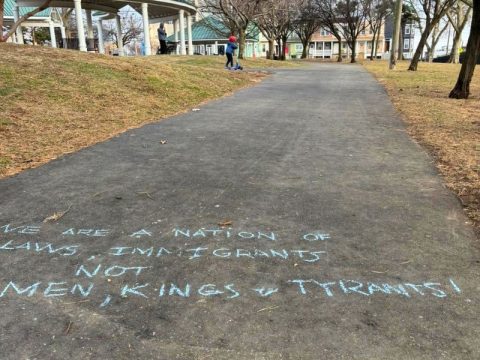 WE ARE A NATION OF
LAWS, IMMIGRANTS
NOT
MEN, KINGS & TYRANTS!